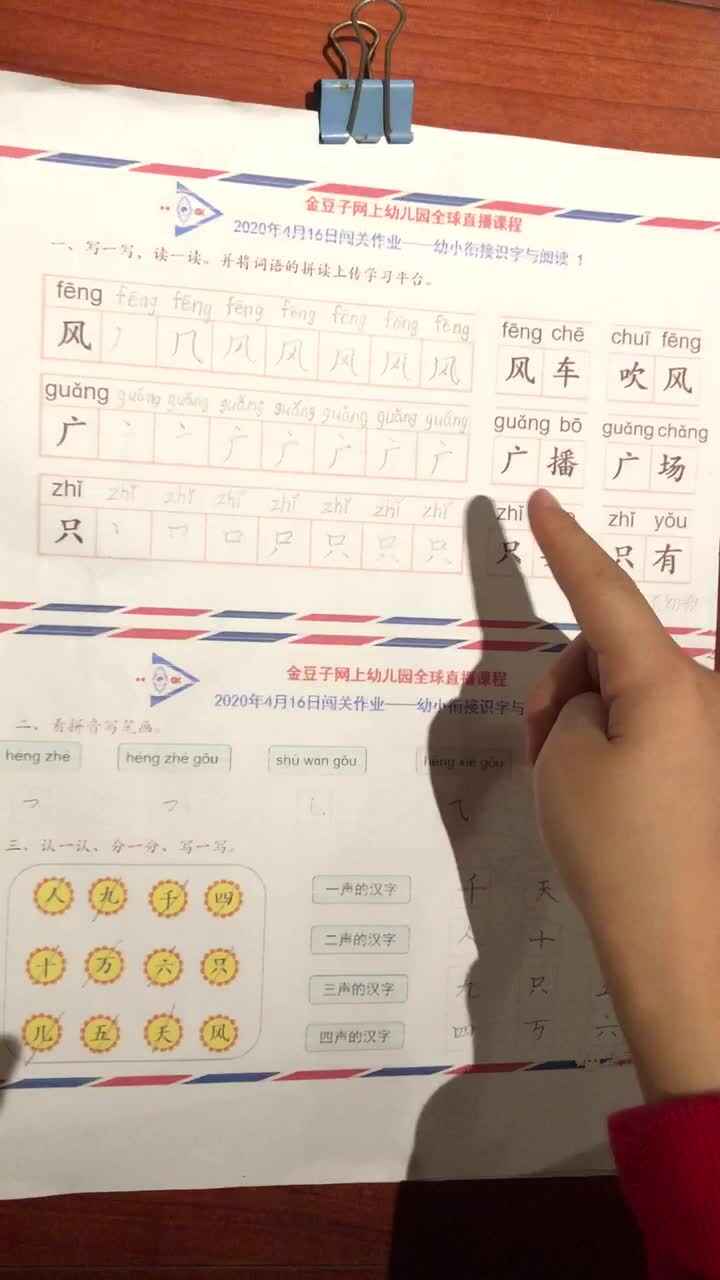 金豆子网上幼儿园全球直播课程
2020年4月16日闯关作业——幼小衔接识字与阅读 1
一、写一写，读一读。并将词语的拼读上传学习平台。
fēng fēng fēng fēng fēng fēng fēng fēng
风 丿 几 风 风 风 风 风
fēng chē chuī fēng
风车 吹风
guǎng guǎng guǎng guǎng guǎng guǎng guǎng guǎng
广 丶 亠 广 广 广 广 广
guǎng bō guǎng chǎng
广播 广场
zhǐ zhǐ zhǐ zhǐ zhǐ zhǐ zhǐ zhǐ
只 丨 口 只 只 只 只
zhǐ zhǐ yǒu
只 只有
金豆子网上幼儿园全球直播课程
2020年4月16日闯关作业——幼小衔接识字与
二、看拼音写笔画。
héng zhé héng zhé gōu shù wān gōu héng xié gōu
㇕ ㇆ 乚 ⺄
三、认一认、分一分、写一写。
人 九 千 四
十 万 六 只
儿 五 天 风
一声的汉字 千 天
二声的汉字 人 十
三声的汉字 九 只 五
四声的汉字 四 万 六